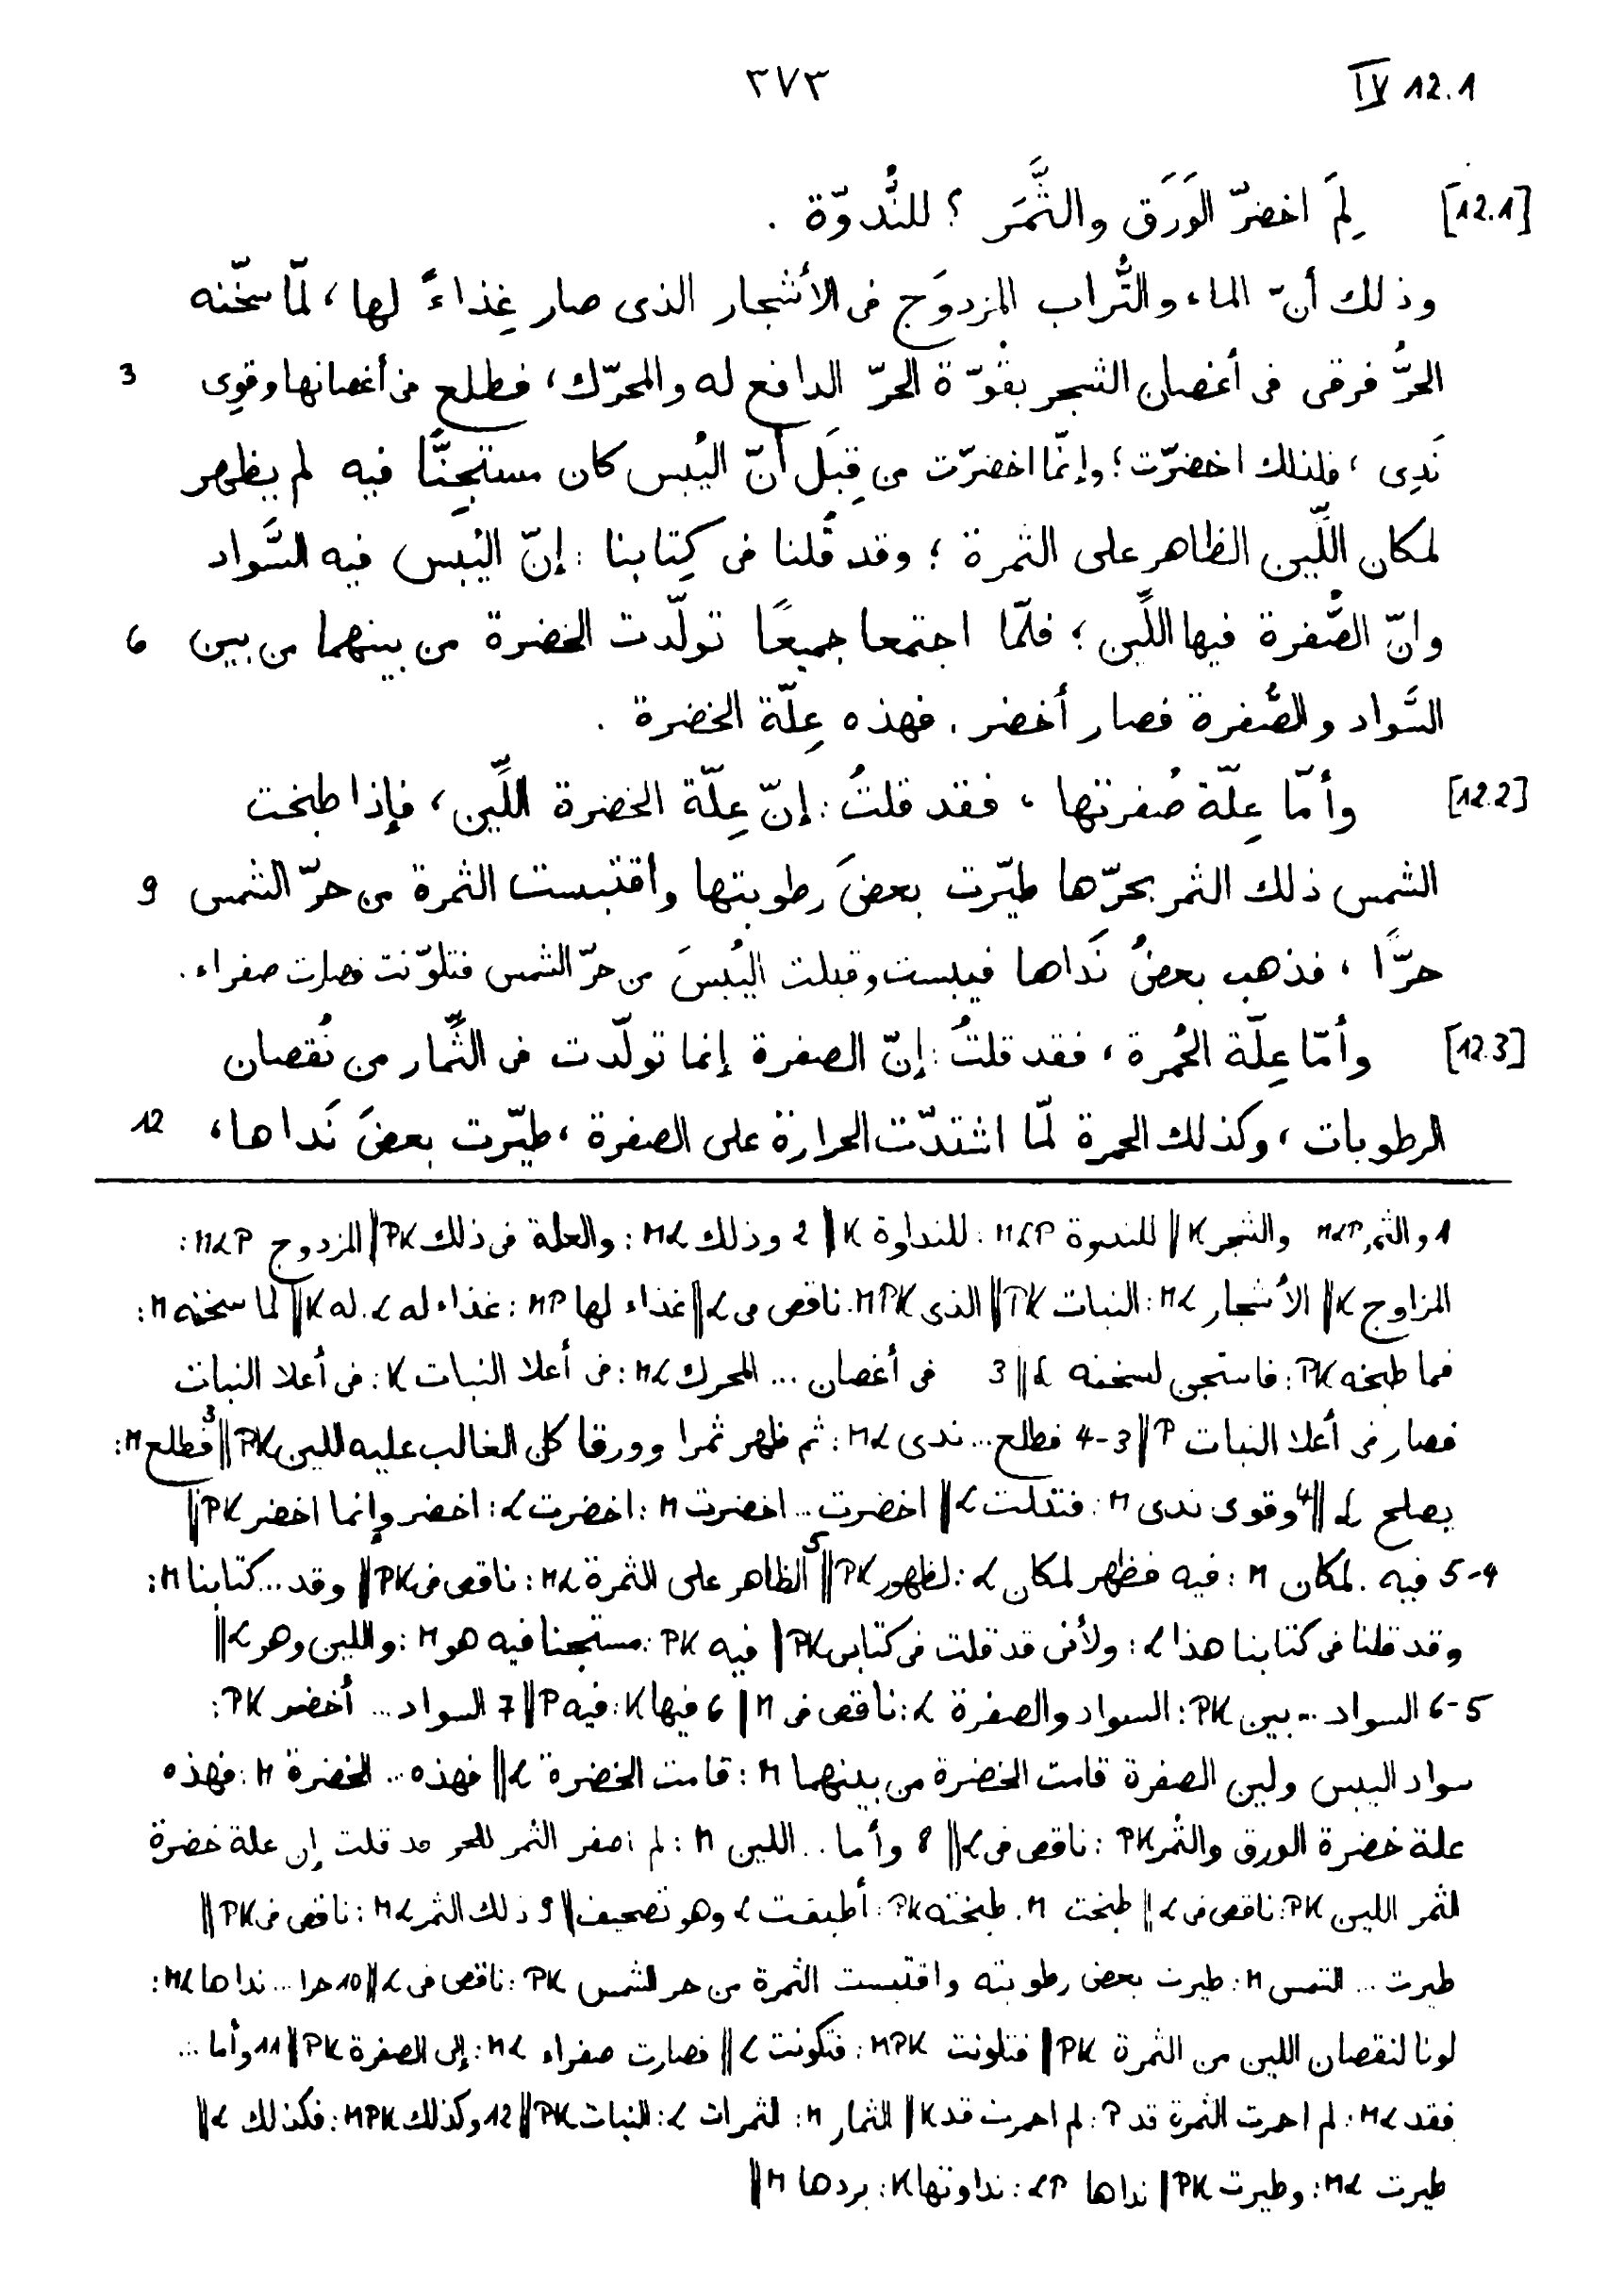 ٣٧٣ IV 12.1
[12.1] لِمَ اخضرّ الوَرَق والثَّمَر ؟ للنُّدوّة .
وذلك أنّ الماء والتُّراب المزدوَج فى الأشجار الذى صار غِذاءً لها ، لمّا سخّنه
3 الحرُّ فرقى فى أغصان الشجر بقُوّة الحرّ الدافع له والمحرّك ، فطلع من أغصانها وقوِى
نَدِى ، فلذلك اخضرّت ؛ وإنّما اخضرّت من قِبَل أنّ اليُبس كان مستجِنًّا فيه لم يظهر
لمكان اللِّين الظاهر على الثمرة ؛ وقد قُلنا فى كِتابنا : إنّ اليُبس فيه السَّواد
6 وانّ الصُّفرة فيها اللِّين ؛ فلمّا اجتمعا جميعًا تولّدت الخضرة من بينهما من بين
السَّواد والصُّفرة فصار أخضر . فهذه عِلّة الخضرة .
[12.2] وأمّا عِلّة صُفرتها ، فقد قلتُ : إنّ عِلّة الخضرة اللِّين ، فإذا طبخت
9 الشمس ذلك الثمر بحرّها طيّرت بعضَ رطوبتها واقتبست الثمرة من حرّ الشمس
حرًّا ، فذهب بعضُ نَداها فيبست وقبلت اليُبسَ من حرّ الشمس فتلوّنت فصارت صفراء .
[12.3] وأمّا عِلّة الحُمرة ، فقد قلتُ : إنّ الصفرة إنما تولّدت فى الثِّمار من نُقصان
12 الرطوبات ، وكذلك الحمرة لمّا اشتدّت الحرارة على الصفرة ، طيّرت بعضَ نَداها ،
1 والثمر MLP والشجر K || للندوة MLP : للنداوة K || 2 وذلك ML : والعلة فى ذلك PK || المزدوج MLP :
المزاوج K || الأشجار ML : النبات PK || الذى MPK . ناقص فى L || غذاء لها MP : غذاء له L . له K || لما سخنه M :
فما طبخه PK : فاستجن لسخنه L || 3 فى أغصان ... المحرك ML : فى أعلا النبات K : فى أعلا النبات
فصار فى أعلا النبات P || 3-4 فطلع ... ندى ML : ثم ظهر ثمرا وورقا كل الغالب عليه اللين PK || 3 فطلع M :
يصلح L || 4 وقوى ندى M : فتدلت L || اخضرت ... اخضرت M : اخضرت L : اخضر وإنما اخضر PK ||
4-5 فيه . لمكان M : فيه فظهر لمكان L : لظهور PK || 5 الظاهر على الثمرة ML : ناقص فى PK || وقد ... كتابنا M :
وقد قلنا فى كتابنا هذا L : ولأنى قد قلت فى كتابى PK || فيه PK : مستجنا فيه هو M : واللين وهو L ||
5-6 السواد ... بين PK : السواد والصفرة L : ناقص فى M || 6 فيها K : فيه P || 7 السواد ... أخضر PK :
سواد اليبس ولين الصفرة قامت الخضرة من بينهما M : قامت الخضرة L || فهذه ... الخضرة M : فهذه
علة خضرة الورق والثمر PK : ناقص فى L || 8 وأما ... اللين M : لم اصفر الثمر للحر قد قلت إن علة خضرة
الثمر اللين PK : ناقص فى L || طبخت M . طبخته PK : أطبقت L وهو تصحيف || 9 ذلك الثمر ML : ناقص فى PK ||
طيرت ... الشمس M : طيرت بعض رطوبته واقتبست الثمرة من حر الشمس PK : ناقص فى L || 10 حرا ... نداها ML :
لونا لنقصان اللين من الثمرة PK || فتلونت MPK : فتكونت L || فصارت صفراء ML : إلى الصفرة PK || 11 وأما ...
فقد ML : لم احمرت الثمرة قد P : لم احمرت قد K || الثمار M : الثمرات L : النبات PK || 12 وكذلك MPK : فكذلك L ||
طيرت ML : وطيرت PK || نداها LP : نداوتها K : بردها M ||